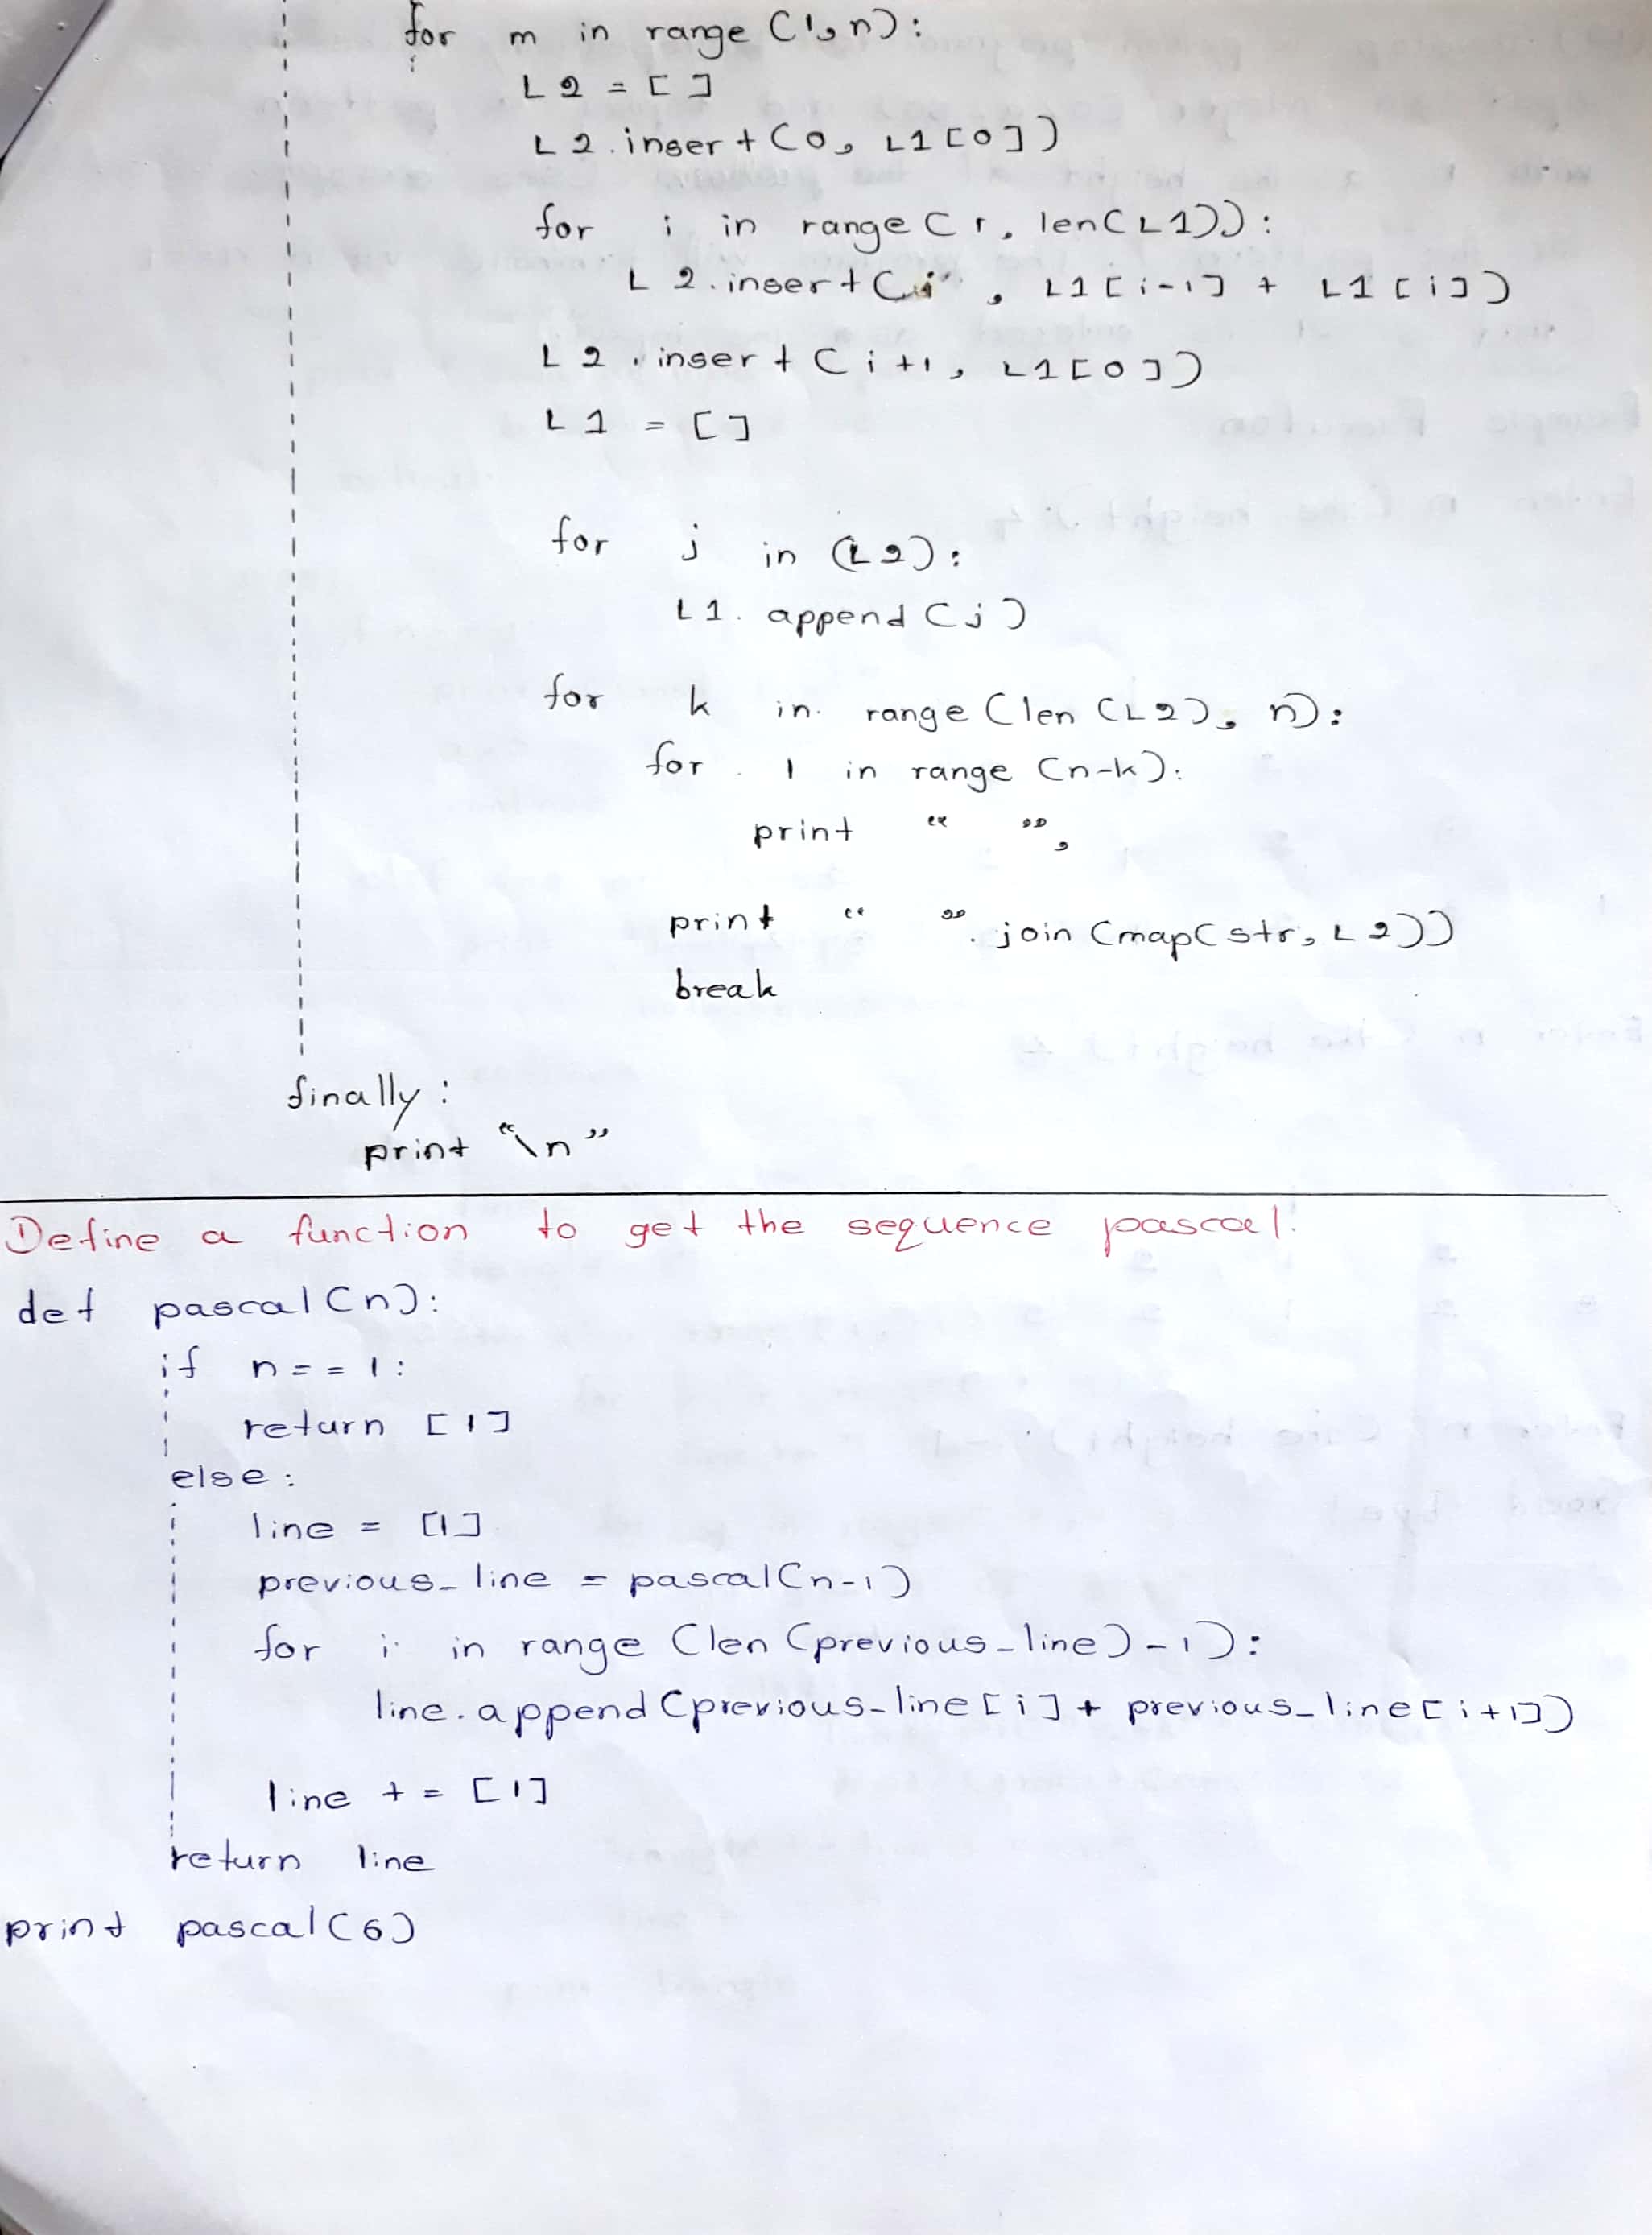 for m in range (1, n):
L2 = []
L2.insert(0, L1[0])
for i in range(1, len(L1)):
L2.insert(i, L1[i-1] + L1[i])
L2.insert(i+1, L1[0])
L1 = []
for j in (L2):
L1.append(j)
for k in range(len(L2), n):
for l in range(n-k):
print “ ”,
print “ ”.join(map(str, L2))
break
finally:
print “\n”
Define a function to get the sequence pascal.
def pascal(n):
if n == 1:
return [1]
else:
line = [1]
previous_line = pascal(n-1)
for i in range(len(previous_line)-1):
line.append(previous_line[i] + previous_line[i+1])
line += [1]
return line
print pascal(6)